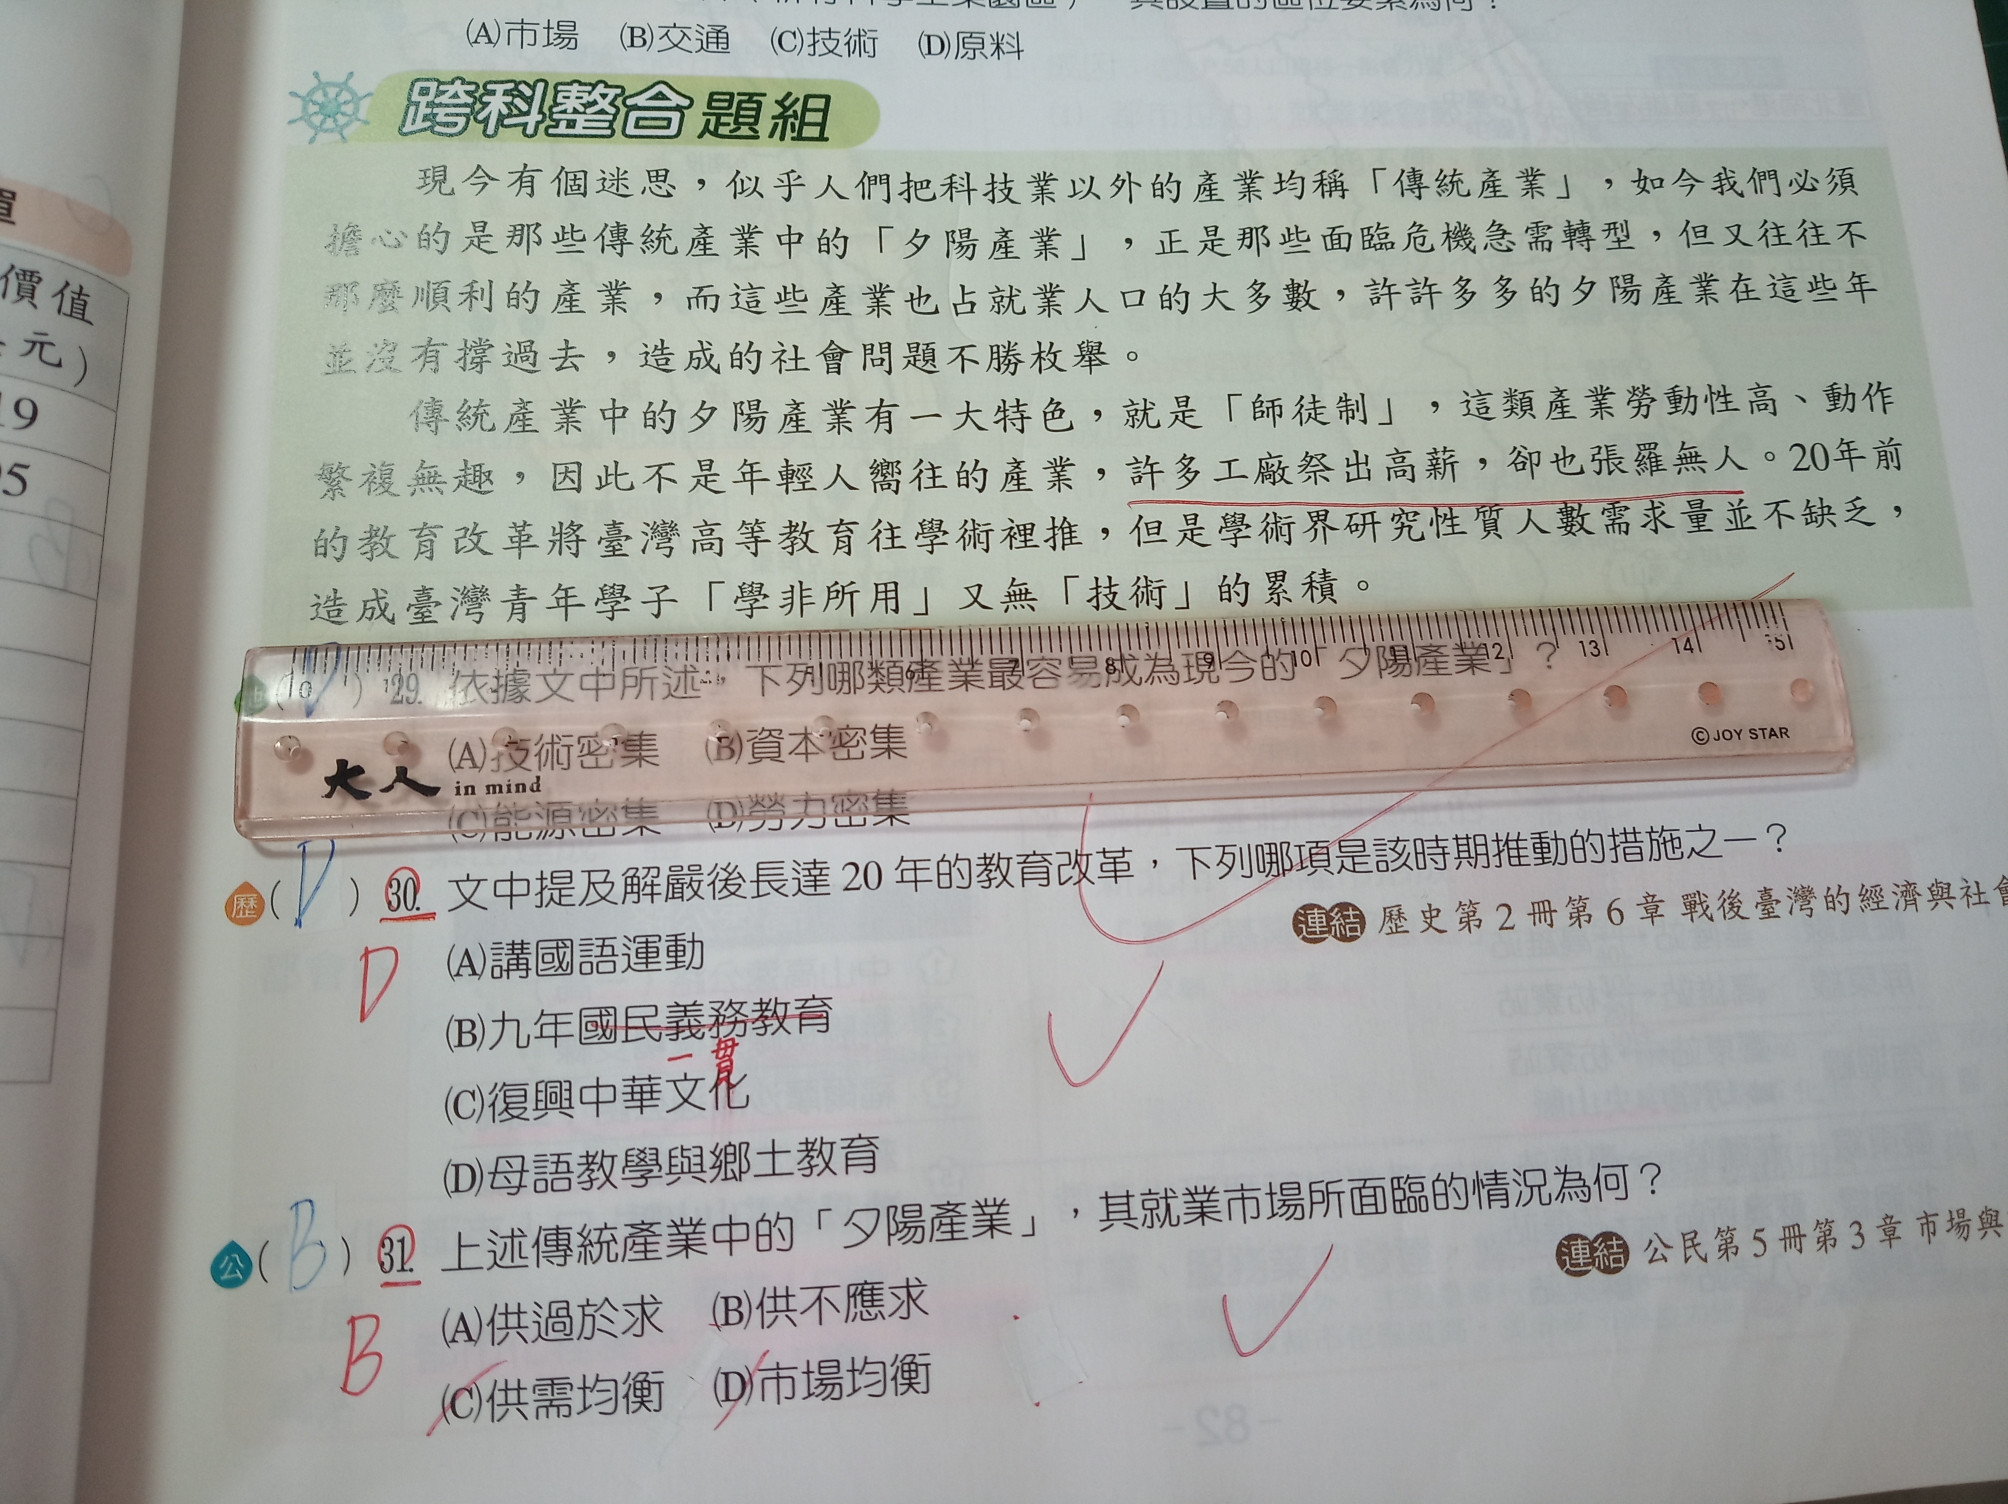 (A)市場 (B)交通 (C)技術 (D)原料
跨科整合題組
現今有個迷思，似乎人們把科技業以外的產業均稱「傳統產業」，如今我們必須
擔心的是那些傳統產業中的「夕陽產業」，正是那些面臨危機急需轉型，但又往往不
那麼順利的產業，而這些產業也占就業人口的大多數，許許多多的夕陽產業在這些年
並沒有撐過去，造成的社會問題不勝枚舉。
傳統產業中的夕陽產業有一大特色，就是「師徒制」，這類產業勞動性高、動作
繁複無趣，因此不是年輕人嚮往的產業，許多工廠祭出高薪，卻也張羅無人。20年前
的教育改革將臺灣高等教育往學術裡推，但是學術界研究性質人數需求量並不缺乏，
造成臺灣青年學子「學非所用」又無「技術」的累積。
(D) 29. 依據文中所述，下列哪類產業最容易成為現今的「夕陽產業」？
(A)技術密集 (B)資本密集
(C)能源密集 (D)勞力密集
大人 in mind
©JOY STAR
歷(D) 30. 文中提及解嚴後長達 20 年的教育改革，下列哪項是該時期推動的措施之一？
連結 歷史第 2 冊第 6 章 戰後臺灣的經濟與社會
D
(A)講國語運動
(B)九年國民義務教育
一貫
(C)復興中華文化
(D)母語教學與鄉土教育
公(B) 31. 上述傳統產業中的「夕陽產業」，其就業市場所面臨的情況為何？
連結 公民第 5 冊第 3 章 市場與
B
(A)供過於求 (B)供不應求
(C)供需均衡 (D)市場均衡
價值
元)
19